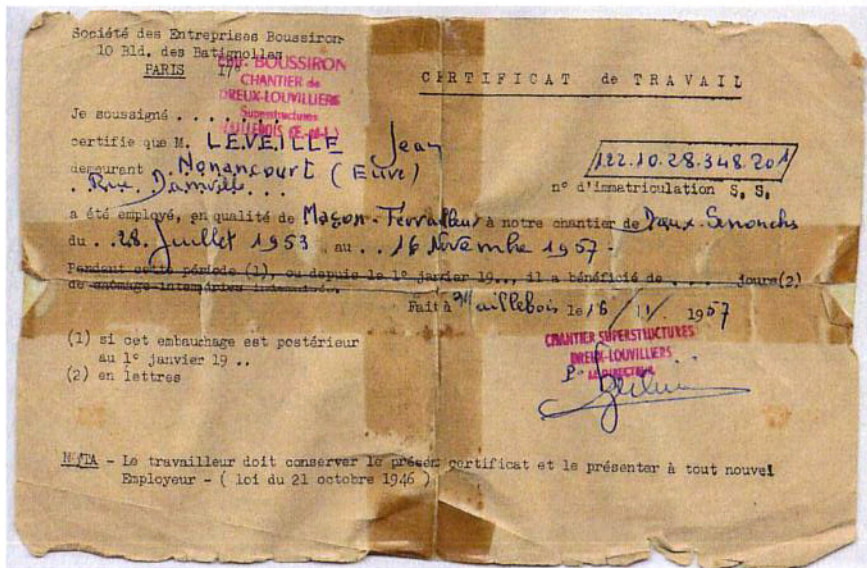 Société des Entreprises Boussiron
10 Bld. des Batignolles
PARIS 17°
BOUSSIRON
CHANTIER de
DREUX-LOUVILLIERS
Superstructures
MAILLEBOIS (E.-&-L.)
CERTIFICAT de TRAVAIL
Je soussigné . . . . .
certifie que M. LEVEILLE Jean
demeurant . Nonancourt (Eure)
. Rue. Damville. . .
1.22.10.28.348.201
n° d'immatriculation S. S.
a été employé, en qualité de Maçon-Ferrailleur à notre chantier de
du . .28. Juillet 1953 au . . 16 Novembre 1957 -
Pendant cette période (1), ou depuis le 1° janvier 19.., il a bénéficié de . . . . jours(2)
de chômage-intempéries
Fait à Maillebois le 16/11/ 1957
(1) si cet embauchage est postérieur
au 1° janvier 19 ..
(2) en lettres
CHANTIER SUPERSTRUCTURES
DREUX-LOUVILLIERS
LE DIRECTEUR
NOTA - Le travailleur doit conserver le présent certificat et le présenter à tout nouvel
Employeur - ( loi du 21 octobre 1946 )